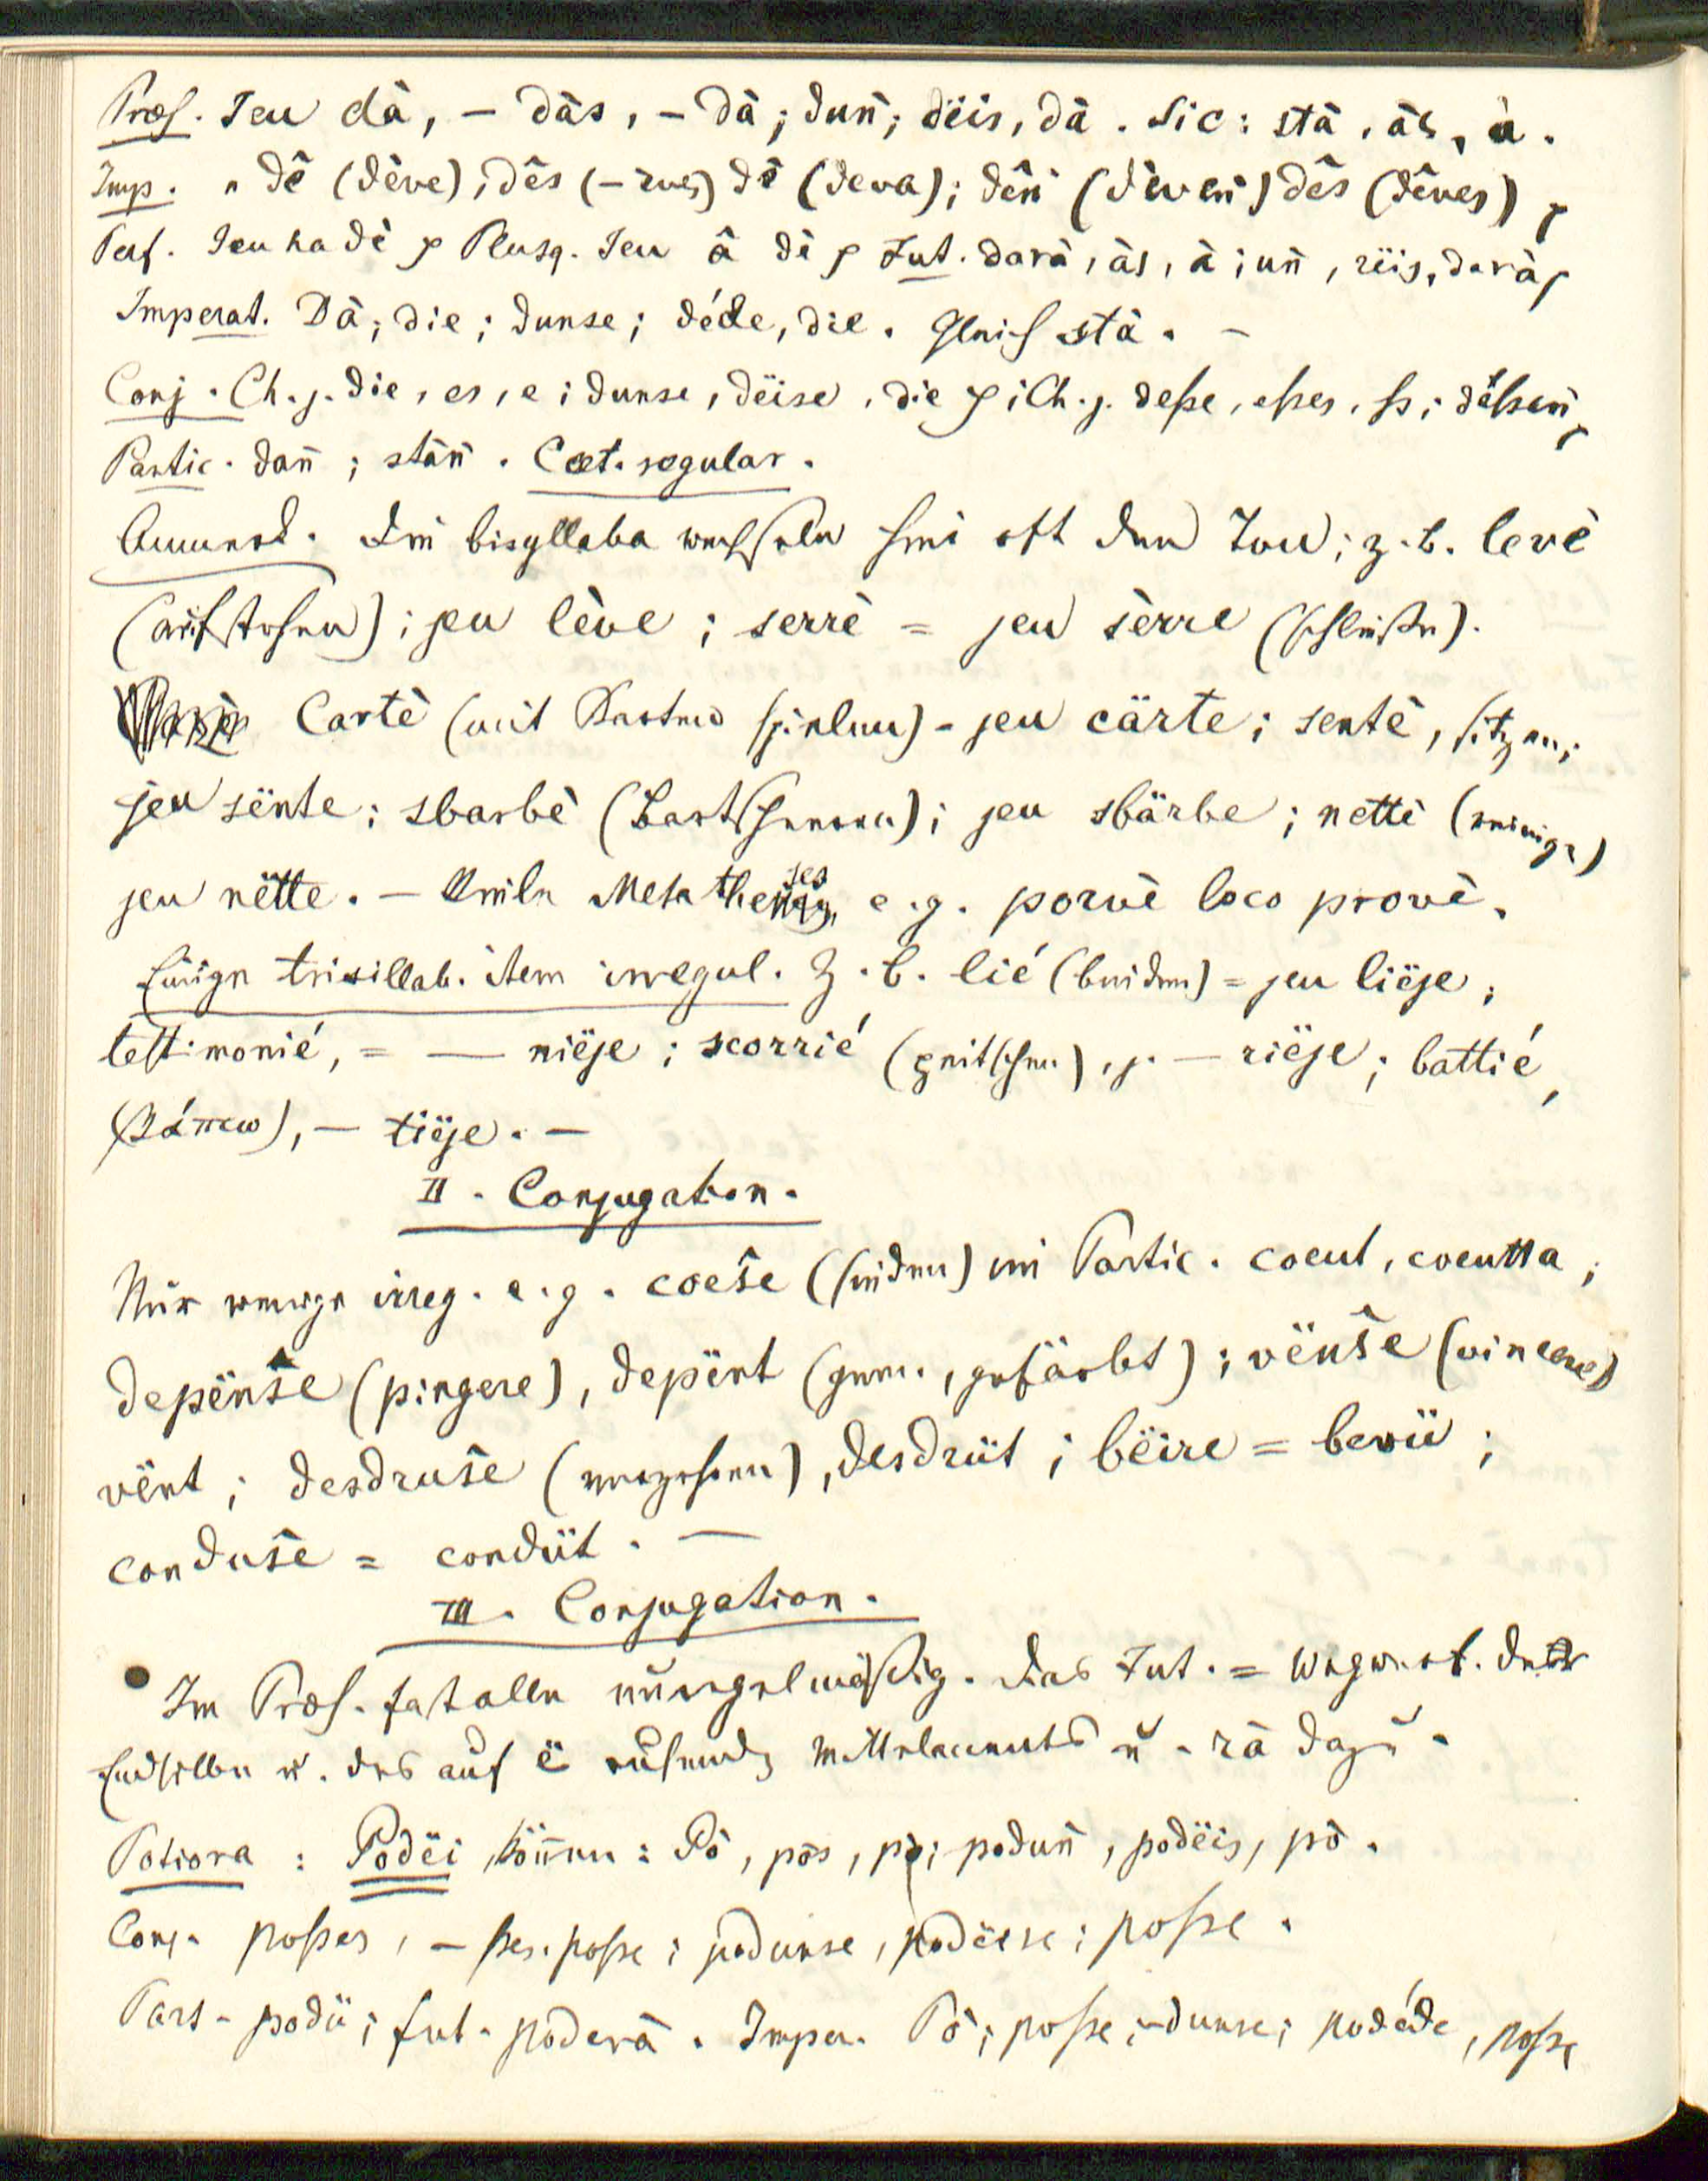 Præs. Jeu dà, – dàs, – dà; dun̄; dëis, dà. Sic: stà, às, à.
Imp. " dê (dève), dês (– ves) dê (deva); dên̄ (dèven̄) dês (dêves)
Perf. Jeu ha dè Plusq. Jeu â dè Fut. darà, às, à; un̄, rëis, darà
Imperat. Dà, die; dunse; déde, die. Gleich stà. –
Conj. Ch. j. die, es, e; dunse, dëise, die; Ch. j. deße, eßes, ß; dëßen̄
Partic. dan̄; stàn̄. Cæt. regular.
Anmerk. Die bisyllaba wechseln hie oft den Ton; z. b. levè
(aufstehen); jeu lève; serrè = jeu sèrre (schließen).
Cartè (mit Karten spielen) – jeu cärte; sentè, sitzen;
jeu sënte; sbarbè (Bart scheren); jeu sbärbe; nettè (reinigen)
jeu nëtte. – Viele Metatheses e. g. porvè loco provè.
Einige trisillab. item irregul. Z. b. lié (binden) = jeu liëje;
testimonié, = — niëje; scorrié (peitschen), j. — riëje; battié,
(βάπτω), – tiëje. –
II. Conjugation.
Nur wenige irreg. e. g. coeše (sieden) im Partic. coeut, coeutta;
depënše (pingere), depënt (gem., gefärbt); vënše (vincere)
vënt; desdruše (verzehren), desdrüt; bëire = bevü;
conduše = condüt. —
III. Conjugation.
Im Præs. fast alle unregelmäßig. Das Fut. = Wegwerf. der
Endsilbe u. des auf ë ruhenden Mittelaccents u. – rà dazu.
Potiora : Podëi, können: Pò, pos, pò; podun̄, podëis, pò.
Conj. posses, – ßes. poße; podunse, podëise; poße.
Part. podü; fut. poderà. Imper. Pò; poße; – dunse; podéde, poße